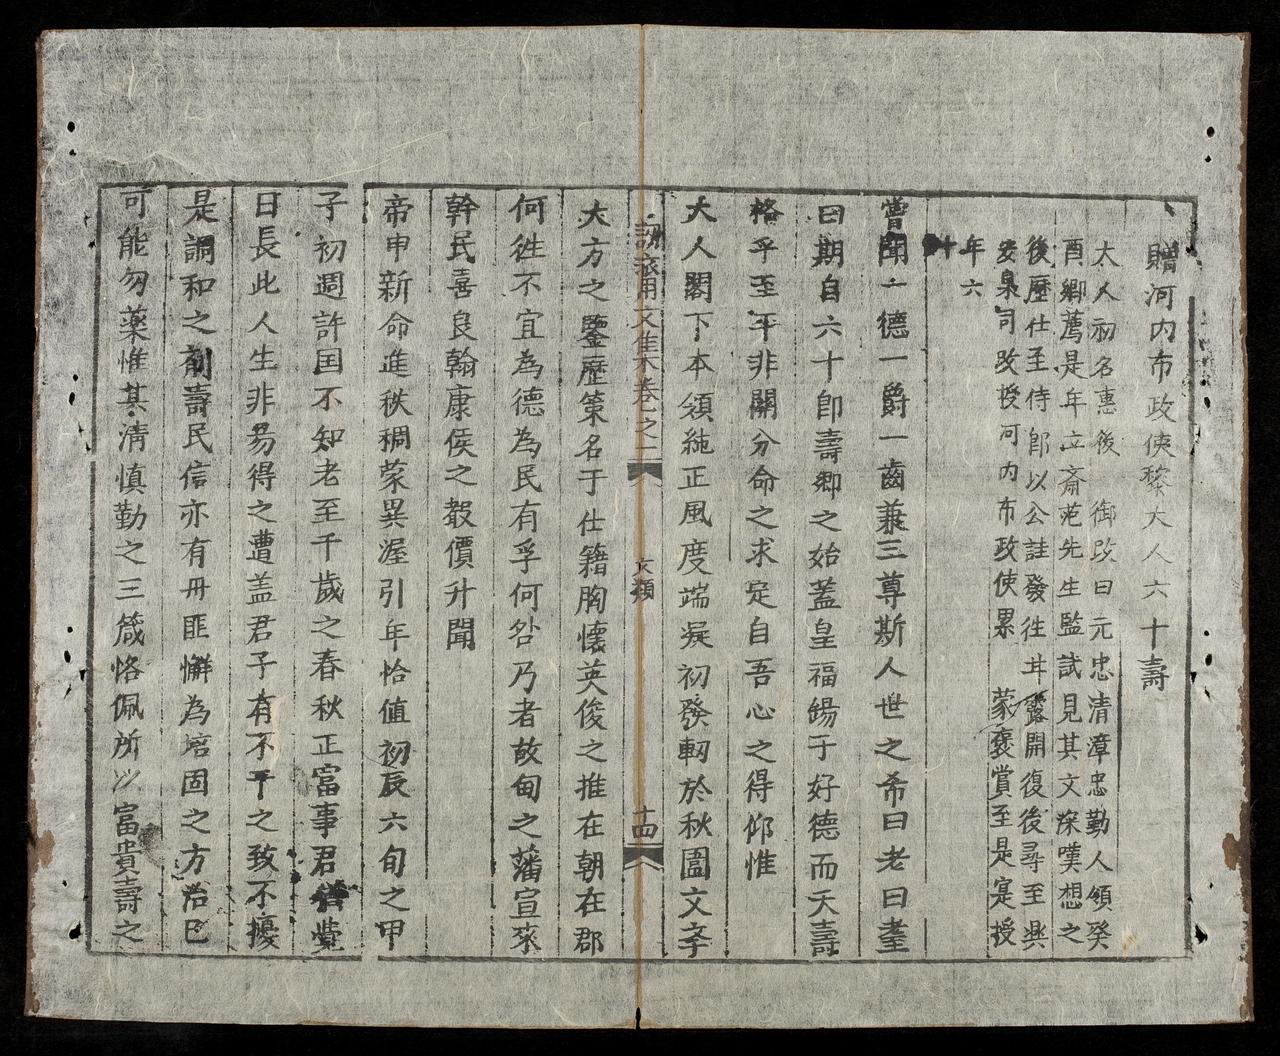 贈河内布政使黎大人六十壽
大人初名惠後　御改曰元忠清漳忠勤人領癸
酉鄉薦是年立齋范先生監試見其文深嘆想之
後歷仕至侍郎以公註發往廾露開復後尋至興
安臬司改授河内布政使累　蒙褒賞至是寔授
年六
十
嘗聞一德一爵一齒兼三尊斯人世之希曰老曰耋
曰期自六十即壽鄉之始蓋皇福錫于好德而天壽
格乎至平非關分命之求定自吾心之得仰惟
大人閣下本領純正風度端凝初發軔於秋圍文字
訓滾用文集木卷之二　文類　十四
大方之鑒歷策名于仕籍胸懷英俊之推在朝在郡
何徃不宜為德為民有孚何咎乃者故甸之藩宣來
幹民喜良翰康侯之轂價升聞
帝申新命進秩稠蒙異渥引年恰值初辰六旬之甲
子初週許国不知老至千歲之春秋正富事君
日長此人生非易得之遭盖君子有不干之致不擾
是調和之劑壽民信亦有冊匪懈為培固之方治已
可能勿藥惟其清慎勤之三箴恪佩所以富貴壽之